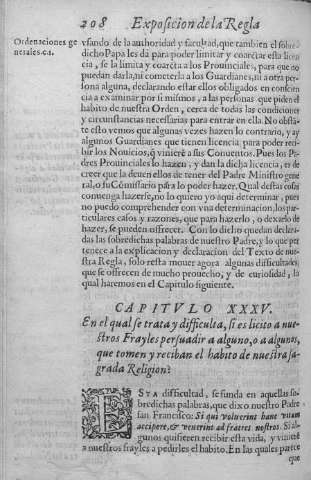 208 Exposicion de la Regla
Ordenaciones ge
nerales.c.2.
vsando de la authoridad y facultad, que tambien el sobre
dicho Papa les dà para poder limitar y coarctar esta licen
cia, se la limita y coarcta a los Prouinciales, para que no
puedan darla, ni cometerla a los Guardianes, ni a otra per-
sona alguna, declarando estar ellos obligados en conscien
cia a examinar por si mismos, a las personas que piden el
habito de nuestra Orden, cerca de todas las condiciones
y circunstancias necesarias para entrar en ella. No obstã-
te esto vemos que algunas vezes hazen lo contrario, y ay
algunos Guardianes que tienen licencia para poder reci-
bir los Nouicios, q̃ vinierẽ a sus Conuentos. Pues los Pa-
dres Prouinciales lo hazen, y dan la dicha licencia, es de
creer que la deuen ellos de tener del Padre Ministro gene
ral, o su Comissario para lo poder hazer. Qual destas cosas
conuenga hazerse, no lo quiero yo aqui determinar, pues
no puedo comprehender con vna determinacion, los par-
ticulares casos y razones, que para hazerlo, o dexarlo de
hazer, se pueden offrecer. Con lo dicho quedan declara-
das las sobredichas palabras de nuestro Padre, y lo que per
tenece a la explicacion y declaracion del Texto de nue-
stra Regla, solo resta mouer agora algunas difficultades
que se offrecen de mucho prouecho, y de curiosidad, la
qual haremos en el Capitulo siguiente.
CAPITVLO XXXV.
En el qual se trata y difficulta, si es licito a nue-
stros Frayles persuadir a alguno, o a algunos,
que tomen y reciban el habito de nuestra sa-
grada Religion?
ESTA difficultad, se funda en aquellas so-
bredichas palabras, que dixo nuestro Padre
san Francisco: Si qui voluerint hanc vitam
accipere, & venerint ad fratres nostros. Si al-
gunos quisieren recibir esta vida, y vinierẽ
a nuestros frayles a pedirles el habito. En las quales partes
que